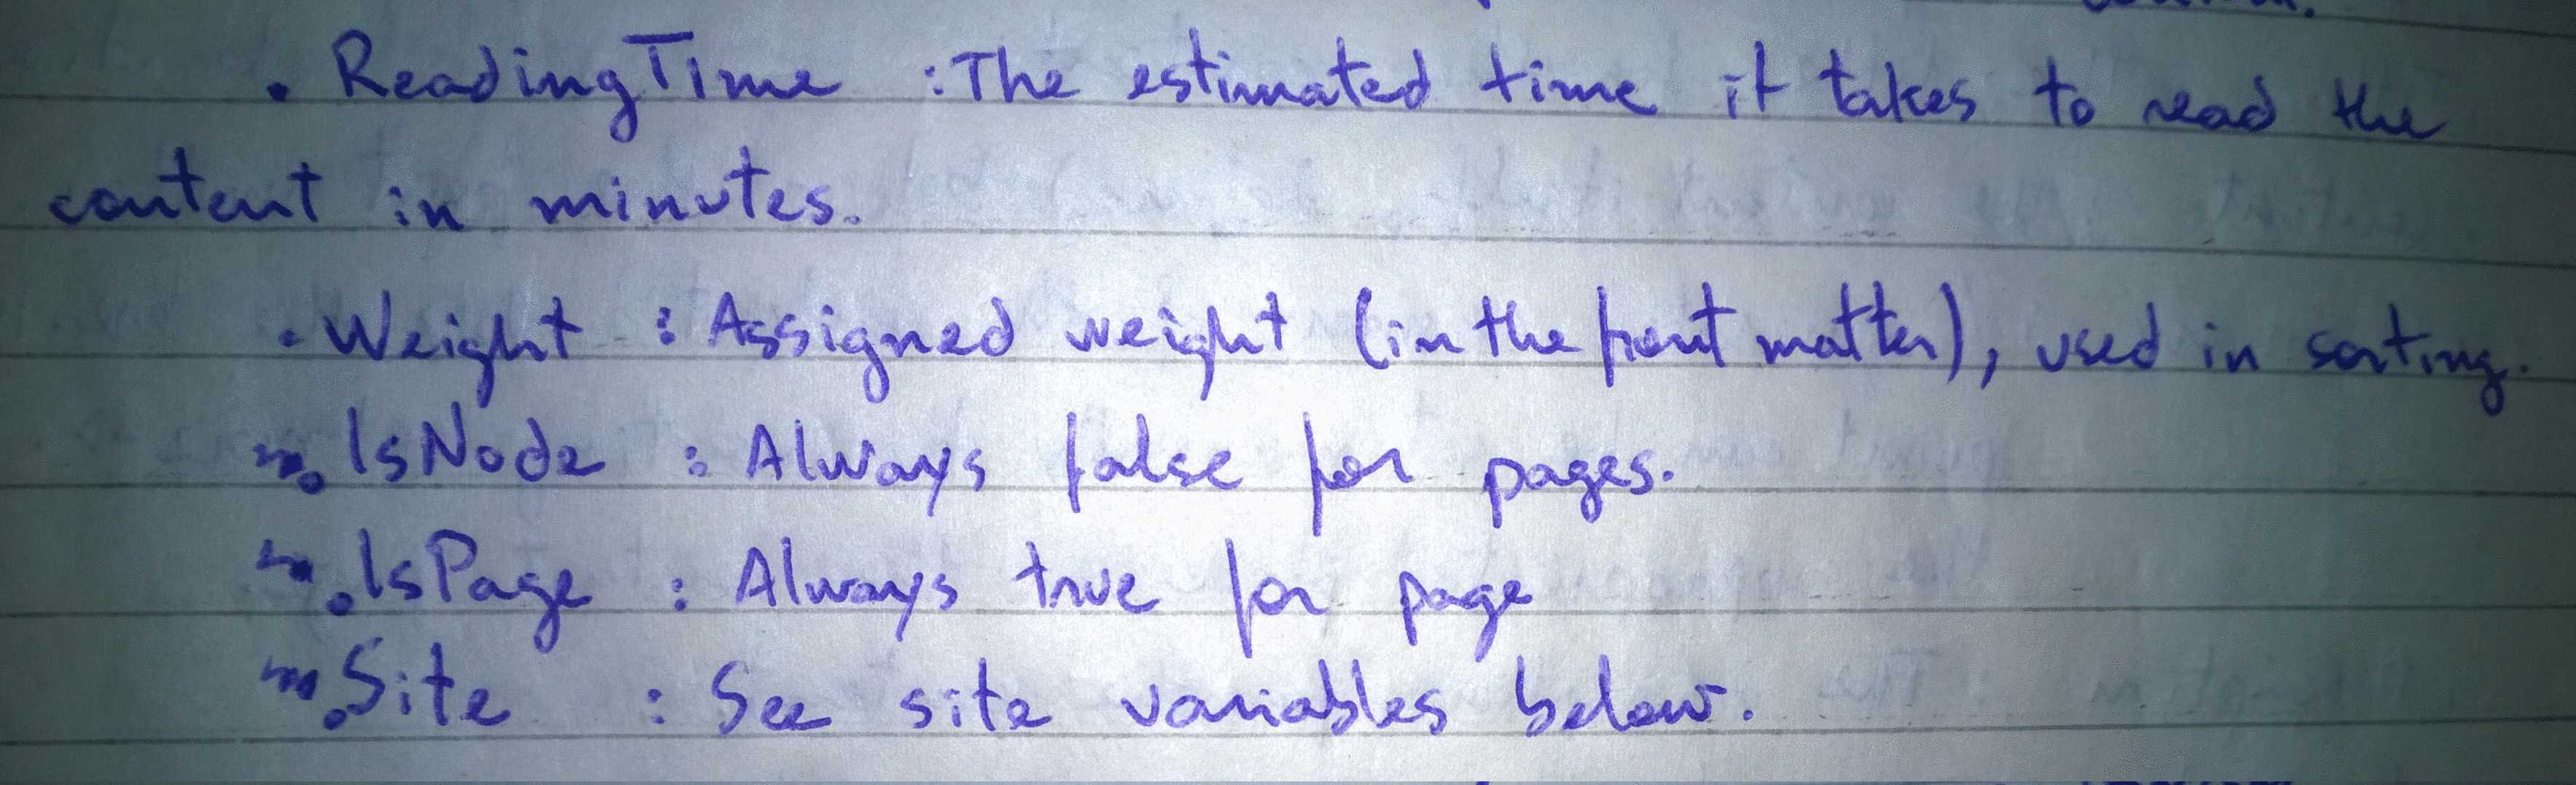 .ReadingTime : The estimated time it takes to read the
content in minutes.
.Weight : Assigned weight (in the front matter), used in sorting.
.IsNode : Always false for pages.
.IsPage : Always true for page
.Site : See site variables below.